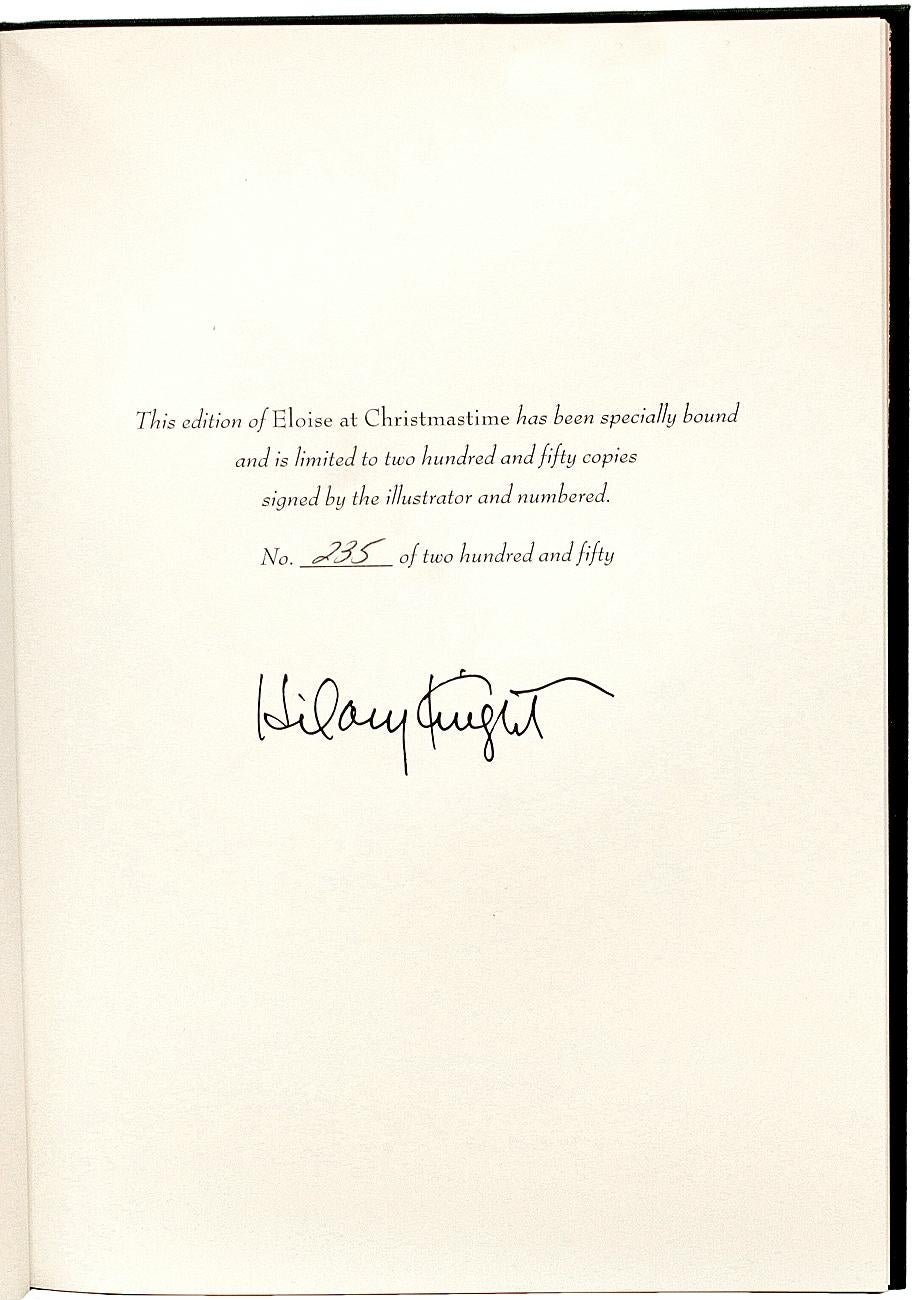 This edition of Eloise at Christmastime has been specially bound
and is limited to two hundred and fifty copies
signed by the illustrator and numbered.
No. 235 of two hundred and fifty
Hilary Knight